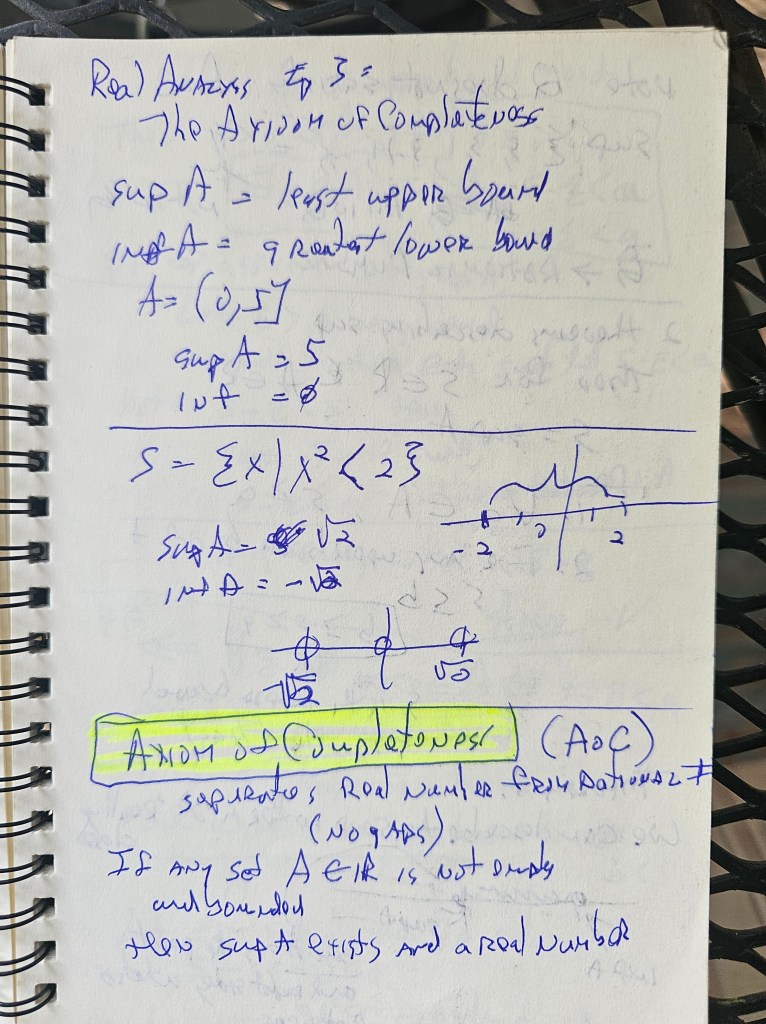 Real Analysis Ep 3:
The Axiom of Completeness
sup A = least upper bound
inf A = greatest lower bound
A = (0,5]
sup A = 5
inf = ∅
S = {x | x² < 2}
-2 0 2
sup A = √2
inf A = -√2
-√2 √2
Axiom of Completeness (AoC)
separates Real Number from Rational #
(No gaps)
If any set A ∈ ℝ is not empty
and bounded
then sup A exists and a real number